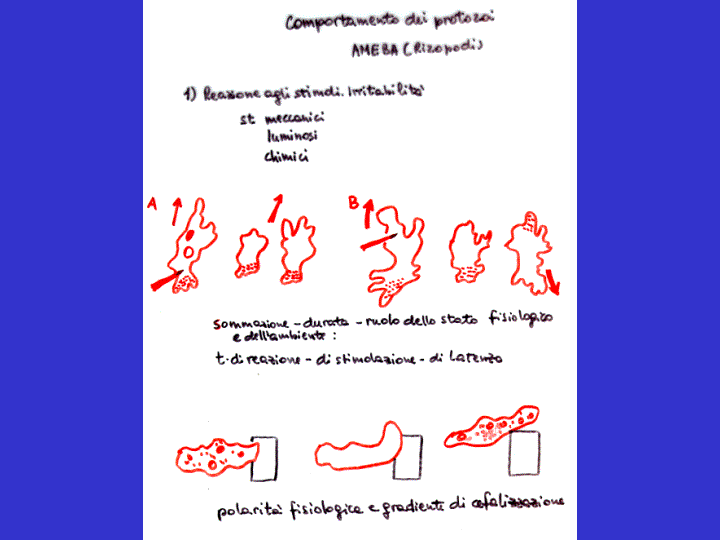 Comportamento dei protozoi
AMEBA (Rizopodi)
1) Reazione agli stimoli. Irritabilità
st meccanici
luminosi
chimici
A
B
sommazione - durata - ruolo dello stato fisiologico
e dell'ambiente :
t. di reazione - di stimolazione - di latenza
polarità fisiologica e gradienti di cefalizzazione